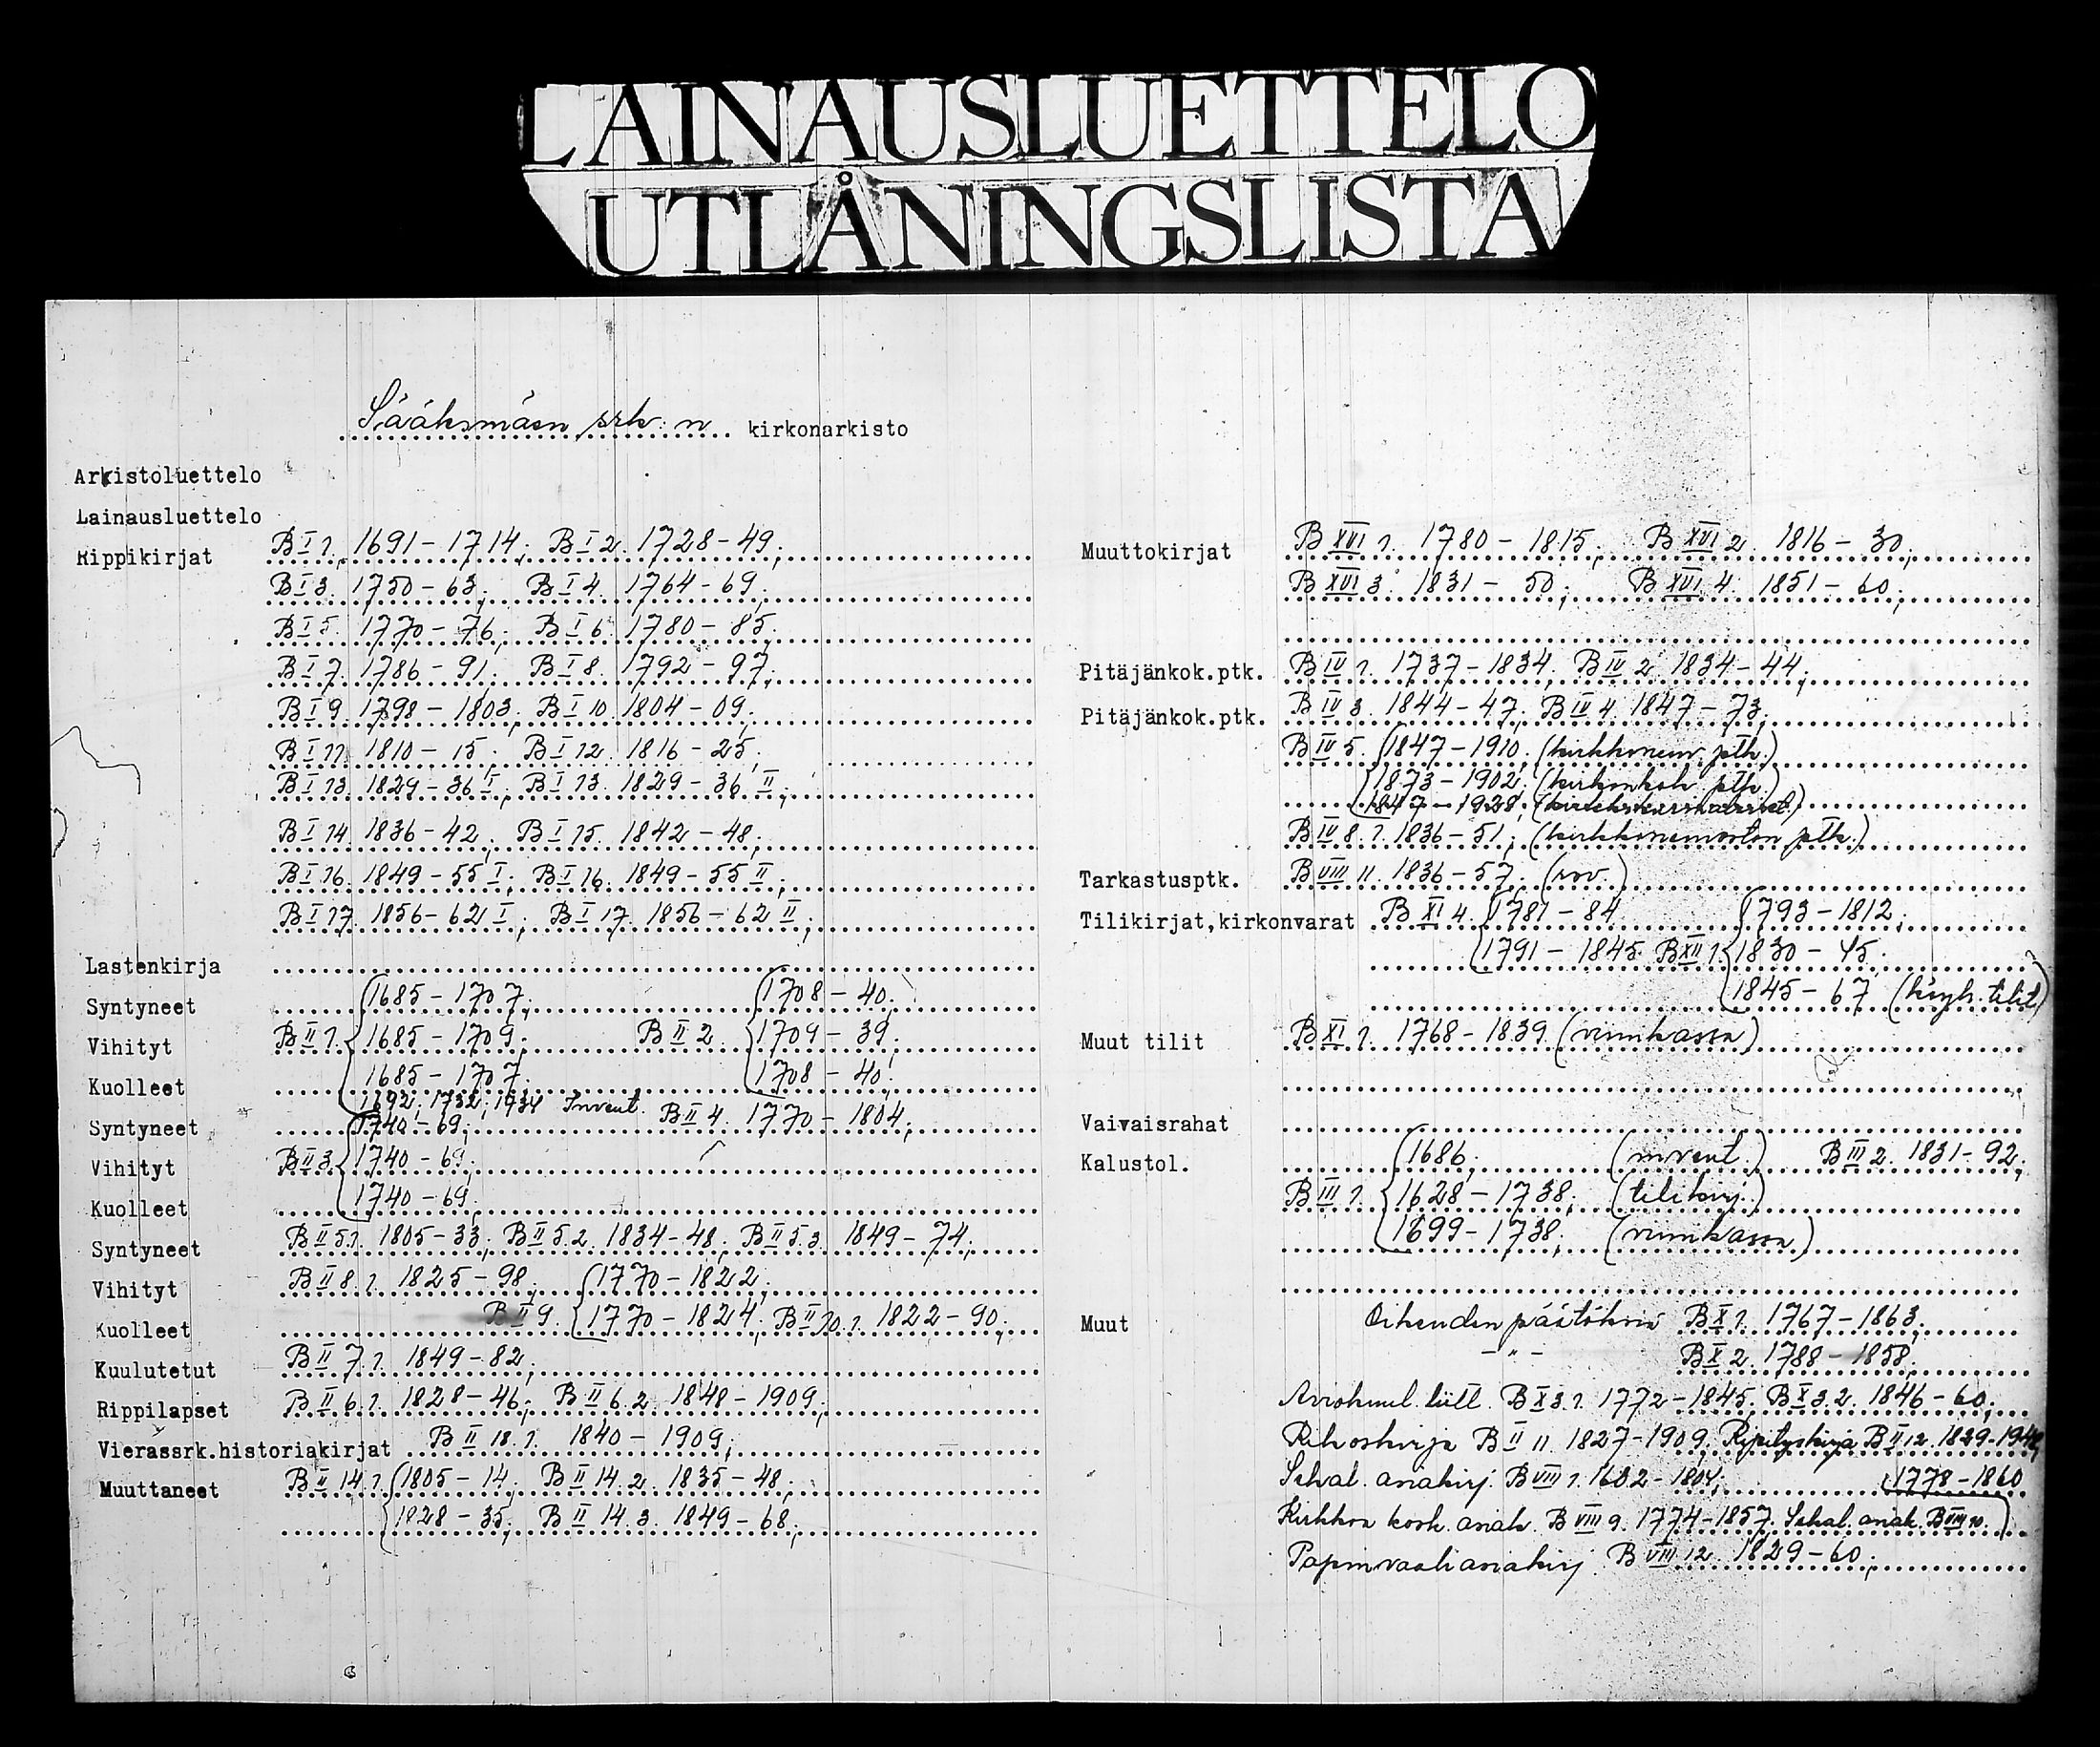 LAINAUSLUETTELO
UTLÅNINGSLISTA
Sääksmäen srk:n kirkonarkisto
Arkistoluettelo
Lainausluettelo
Rippikirjat B I 1. 1691-1714; B I 2. 1728-49;
B I 3. 1750-63; B I 4. 1764-69;
B I 5. 1770-76; B I 6. 1780-85;
B I 7. 1786-91; B I 8. 1792-97;
B I 9. 1798-1803; B I 10. 1804-09;
B I 11. 1810-15; B I 12. 1816-25;
B I 13. 1829-36 I; B I 13. 1829-36 II;
B I 14. 1836-42; B I 15. 1842-48;
B I 16. 1849-55 I; B I 16. 1849-55 II;
B I 17. 1856-62 I; B I 17. 1856-62 II;
Lastenkirja
Syntyneet 1685-1707; 1708-40;
Vihityt B II 1. 1685-1709; B II 2. 1709-39;
Kuolleet 1685-1707; 1708-40;
1692; 1732; 1734 Invent.
Syntyneet 1740-69; B II 4. 1770-1804;
Vihityt B II 3. 1740-69;
Kuolleet 1740-69.
Syntyneet B II 5.1. 1805-33; B II 5.2. 1834-48; B II 5.3. 1849-74;
Vihityt B II 8.1. 1825-98; 1770-1822;
Kuolleet B II 9. 1770-1824; B II 10.1. 1822-90;
Kuulutetut B II 7.1. 1849-82;
Rippilapset B II 6.1. 1828-46; B II 6.2. 1848-1909;
Vierassrk.historiakirjat B II 18.1. 1840-1909;
Muuttaneet B II 14.1. 1805-14; B II 14.2. 1835-48;
1828-35; B II 14.3. 1849-68;
Muuttokirjat B XVI 1. 1780-1815; B XVI 2. 1816-30;
B XVI 3. 1831-50; B XVI 4. 1851-60;
Pitäjänkok.ptk. B IV 1. 1737-1834; B IV 2. 1834-44;
Pitäjänkok.ptk. B IV 3. 1844-47; B IV 4. 1847-73;
B IV 5. 1847-1910; (kirkkoneuv. ptk.)
1873-1902; (kirkonkok. ptk.)
1847-1928;
B IV 8.1. 1836-51; (kirkkoneuvoston ptk.)
Tarkastusptk. B VIII 11. 1836-57. (rov.)
Tilikirjat,kirkonvarat B XI 4. 1781-84 1793-1812;
1791-1845. B XII 1. 1830-45.
1845-67. (köyh. tilit)
Muut tilit B XI 1. 1768-1839. (viinikassa)
Vaivaisrahat
Kalustol. 1686; (invent.) B III 2. 1831-92;
B III 1. 1628-1738; (tilikirj.)
1699-1738; (viinikassa)
Muut Oikeuden päätöksiä B X 1. 1767-1863;
-"- B X 2. 1788-1858;
Avioliitt. B X 3.1. 1772-1845. B X 3.2. 1846-60;
Rikoskirja B II 11. 1827-1909; Ripityskirja B II 12. 1829-1948;
Sekal. asiakirj. B VIII 1. 1602-1804; 1778-1860
Kirkkoa kosk. asiak. B VIII 9. 1774-1857. Sekal. asiak. B VIII 10.
Papinvaaliasiakirj. B VIII 12. 1829-60;